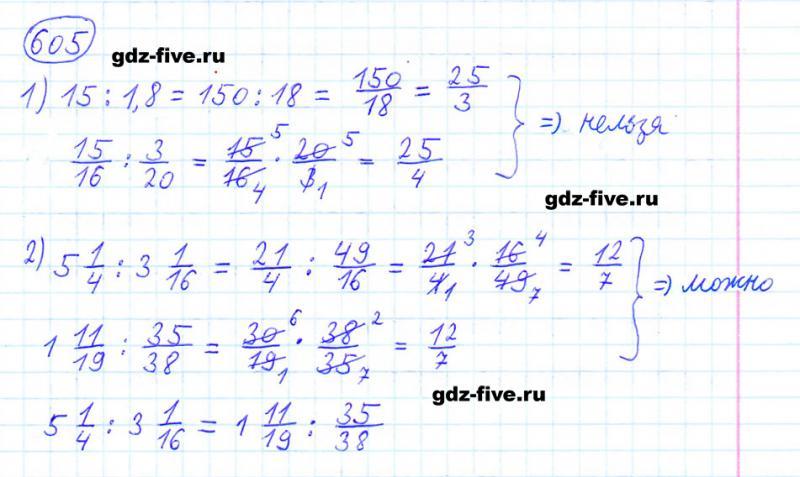 605
gdz-five.ru
1) 15 : 1,8 = 150 : 18 = 150/18 = 25/3
15/16 : 3/20 = 15/16 5 4 · 20/3 5 1 = 25/4
⇒ нельзя
gdz-five.ru
2) 5 1/4 : 3 1/16 = 21/4 : 49/16 = 21/4 3 1 · 16/49 4 7 = 12/7
1 11/19 : 35/38 = 30/19 6 1 · 38/35 2 7 = 12/7
⇒ можно
gdz-five.ru
5 1/4 : 3 1/16 = 1 11/19 : 35/38